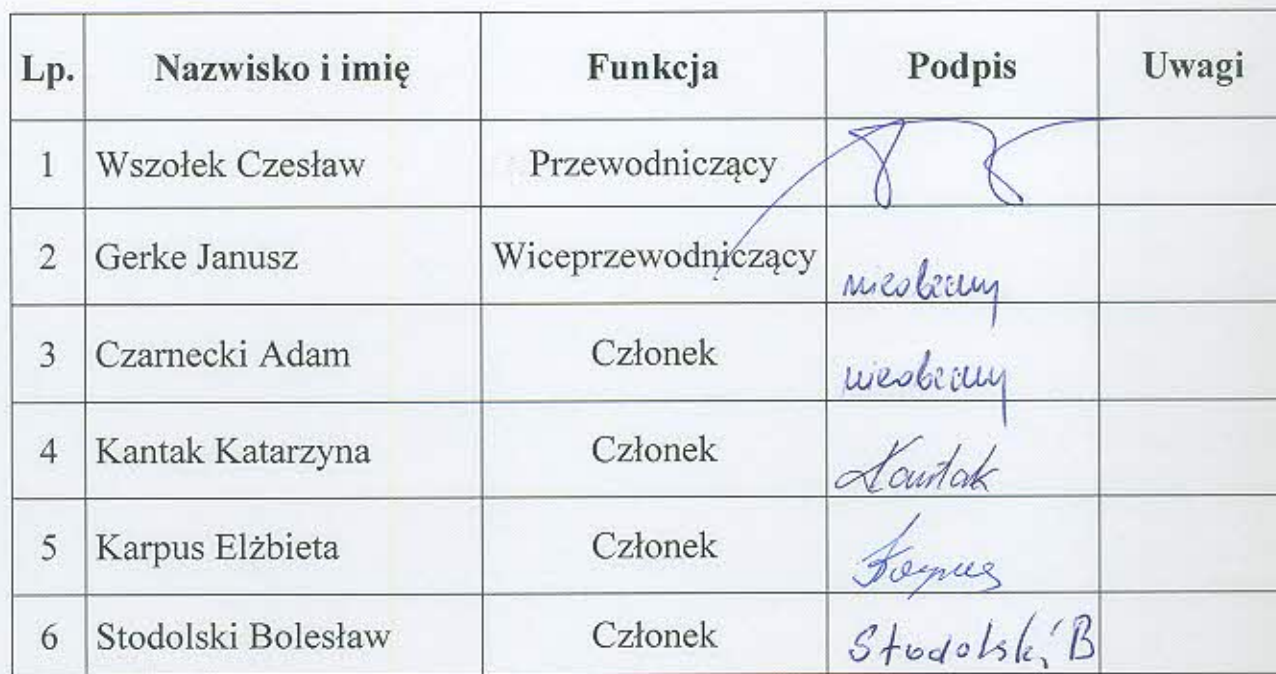 Lp. Nazwisko i imię Funkcja Podpis Uwagi
1 Wszołek Czesław Przewodniczący
2 Gerke Janusz Wiceprzewodniczący nieobecny
3 Czarnecki Adam Członek nieobecny
4 Kantak Katarzyna Członek Kantak
5 Karpus Elżbieta Członek Karpus
6 Stodolski Bolesław Członek Stodolski B